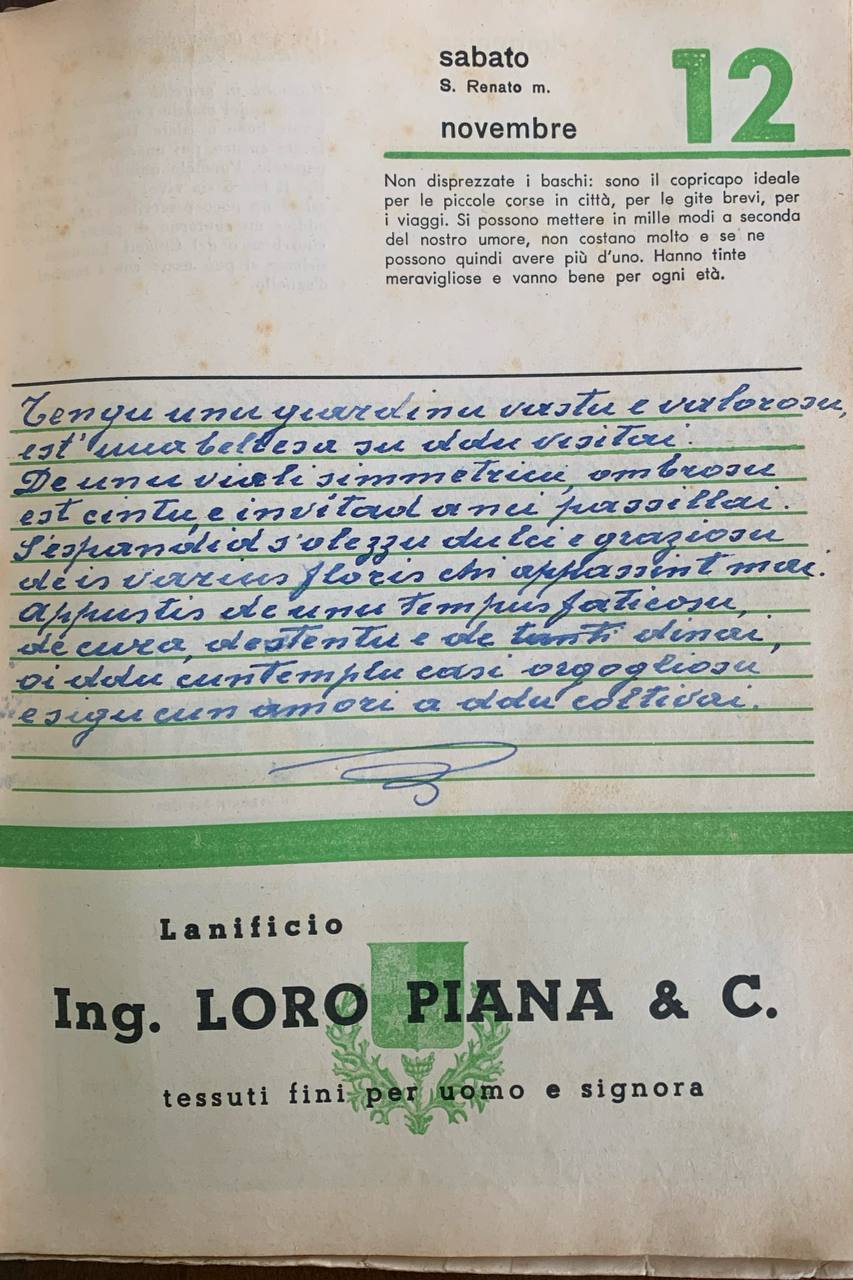 sabato
S. Renato m.
novembre
12
Non disprezzate i baschi: sono il copricapo ideale
per le piccole corse in città, per le gite brevi, per
i viaggi. Si possono mettere in mille modi a seconda
del nostro umore, non costano molto e se ne
possono quindi avere più d'uno. Hanno tinte
meravigliose e vanno bene per ogni età.
Tengu unu giardinu vastu e valorosu,
est' una bellesa su ddu visitai.
De unu viali simmetricu, ombrosu
est cintu, e invitad a nci passillai.
S'espandid s'olezzu dulci e graziosu
de is varius floris chi appassint mai.
Appustis de unu tempus faticosu,
de cura, de stentu e de tanti dinai,
oi ddu cuntemplu casi orgogliosu
e sigu cun amori a ddu coltivai.
Lanificio
Ing. LORO PIANA & C.
tessuti fini per uomo e signora